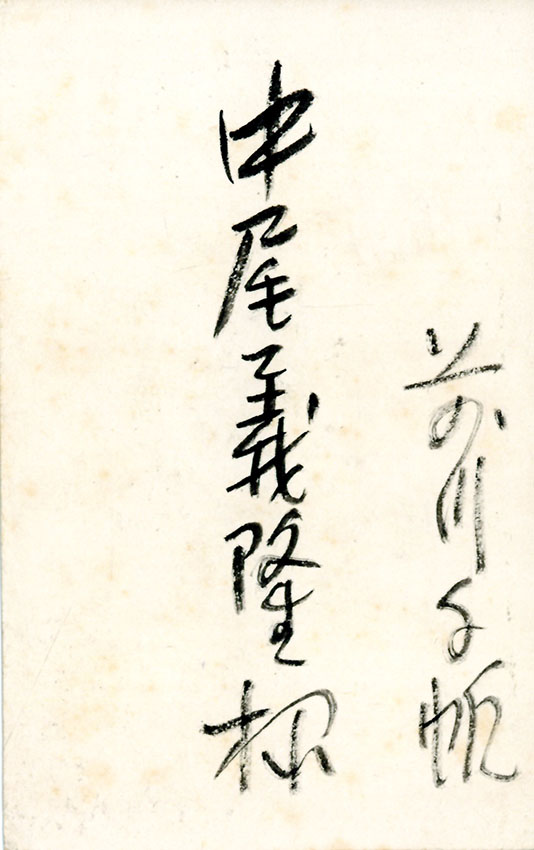 前川千帆
中尾義隆様